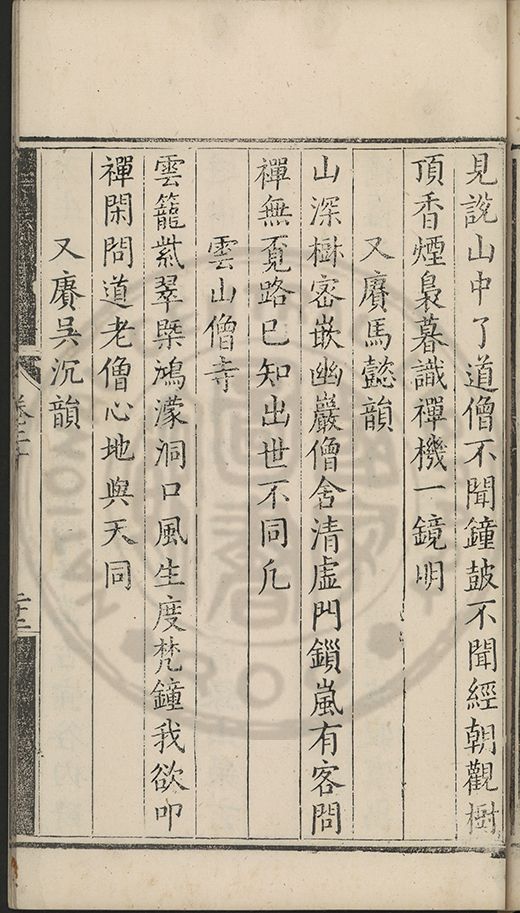 見說山中了道僧不聞鐘皷不聞經朝觀樹
頂香煙裊暮識禪機一鏡明
又賡馬懿韻
山深樹宻嵌幽巖僧舍清虛門鎖嵐有客問
禪無覔路已知出世不同凢
雲山僧寺
雲籠紫翠槩鴻濛洞口風生度梵鐘我欲叩
禪閑問道老僧心地與天同
又賡吳沉韻
卷二十
二十二